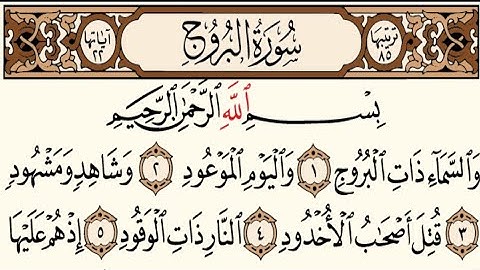 ترتيبها ٨٥ سورة البروج آياتها ٢٢
بِسْمِ ٱللَّهِ ٱلرَّحْمَٰنِ ٱلرَّحِيمِ
وَٱلسَّمَآءِ ذَاتِ ٱلْبُرُوجِ ١ وَٱلْيَوْمِ ٱلْمَوْعُودِ ٢ وَشَاهِدٍ وَمَشْهُودٍ
٣ قُتِلَ أَصْحَٰبُ ٱلْأُخْدُودِ ٤ ٱلنَّارِ ذَاتِ ٱلْوَقُودِ ٥ إِذْ هُمْ عَلَيْهَا